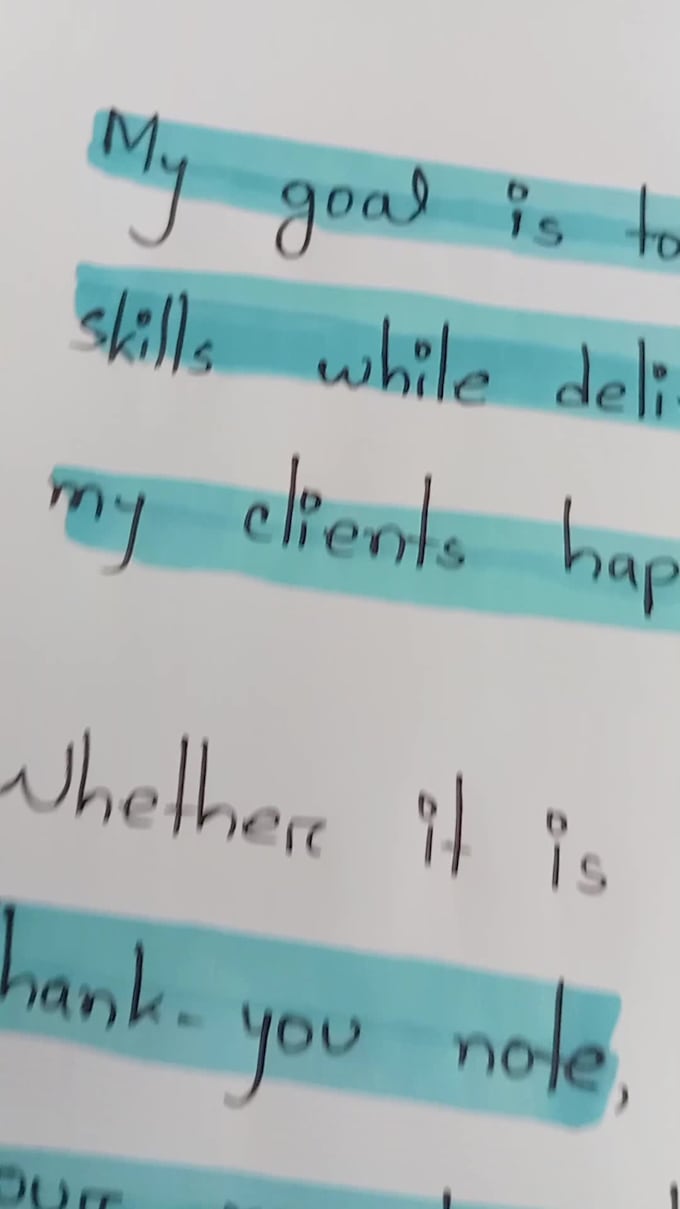 My goal is to
skills while deli
my clients hap
Whether it is
hank-you note,